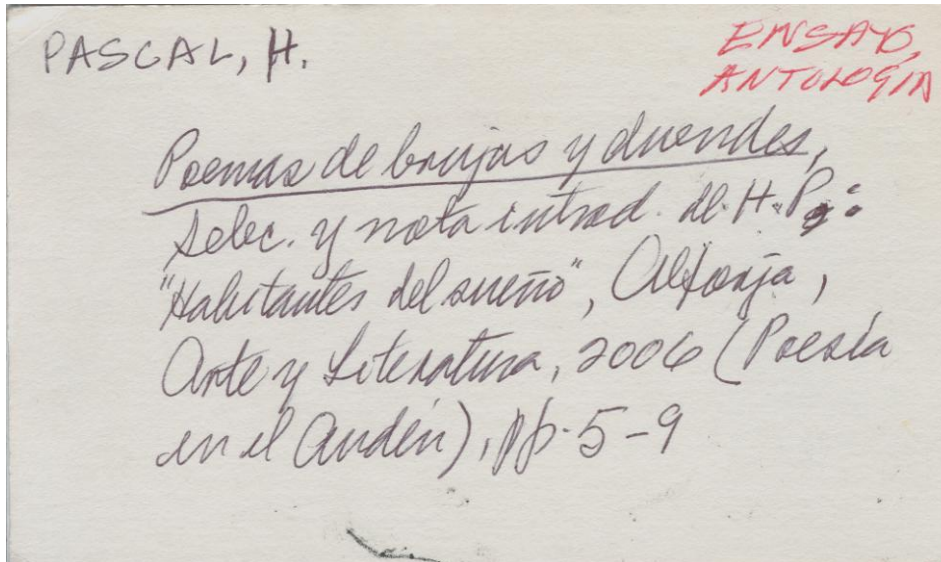 PASCAL, H.
ENSAYO,
ANTOLOGÍA
Poemas de brujas y duendes,
selec. y nota introd. de H. P.:
"Habitantes del sueño", Alforja,
Arte y Literatura, 2006 (Poesía
en el Andén), pp. 5-9